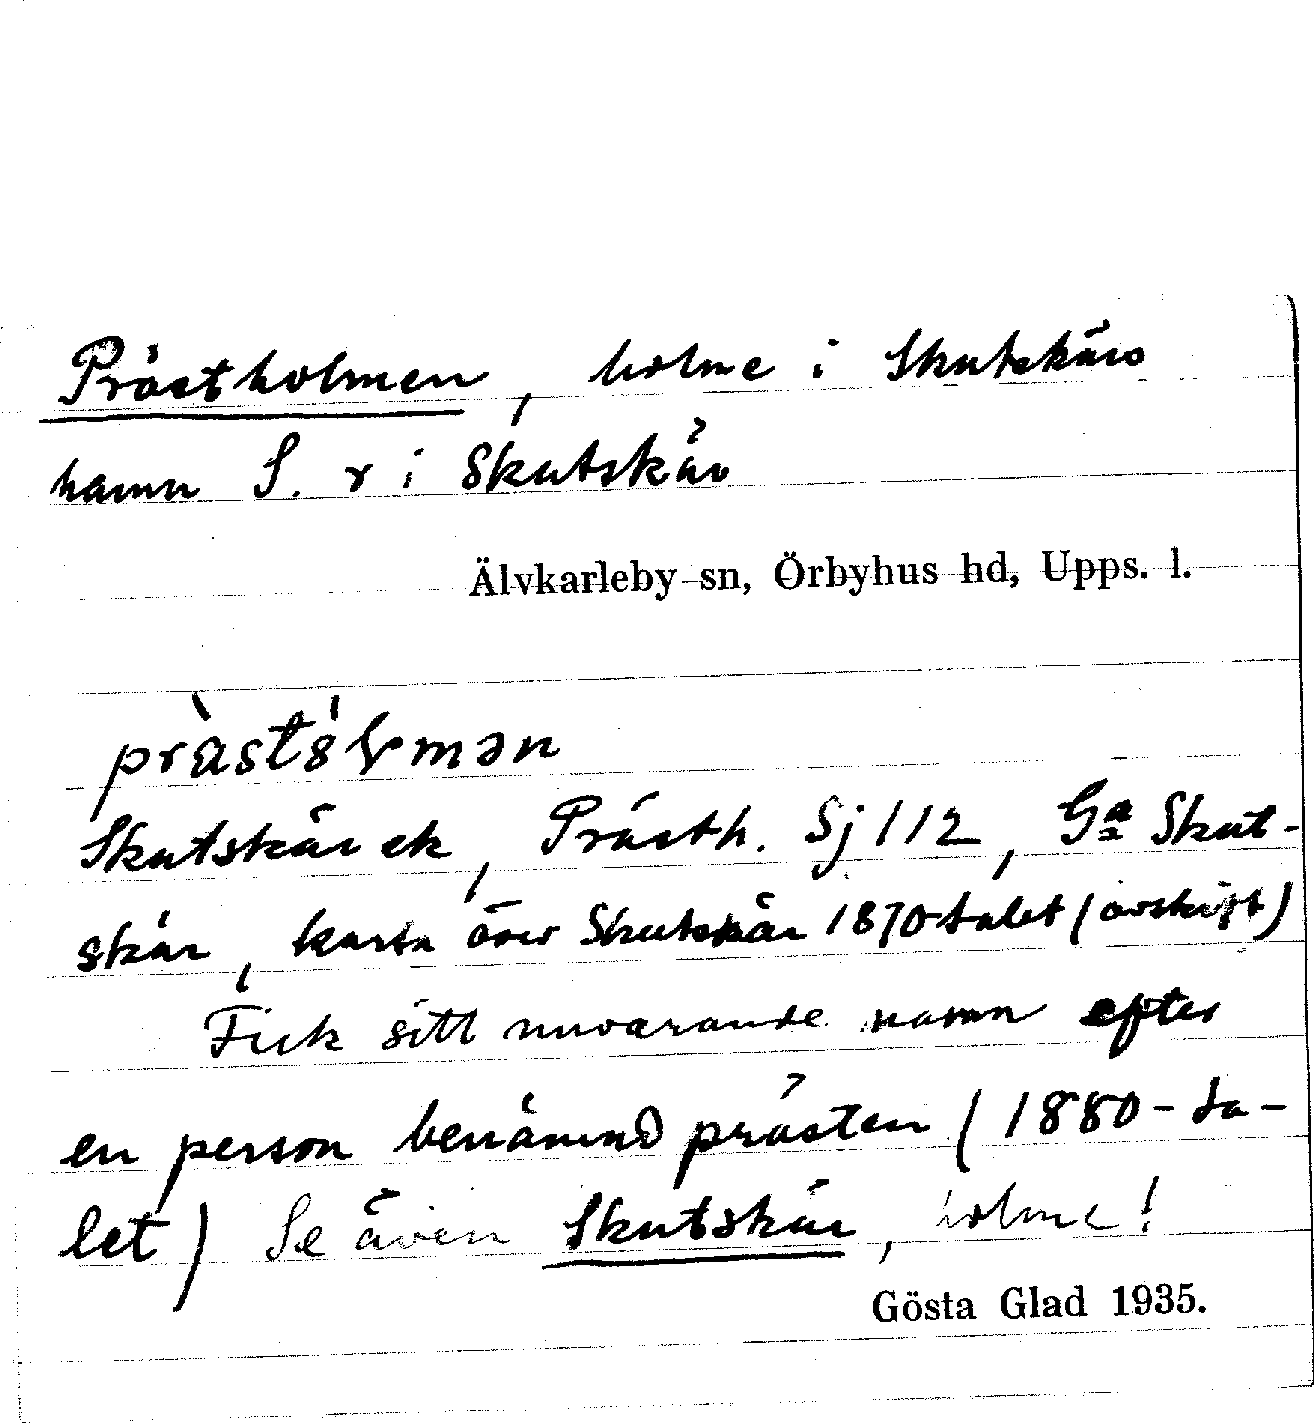 Prästholmen, holme i Skutskärs
hamn S. r i Skutskär
Älvkarleby sn, Örbyhus hd, Upps. l.
Skutskär ek, Prästh. Sj 112, Ga Skut-
skär, karta över Skutskär 1870-talet (avskrift)
Fick sitt nuvarande namn efter
en person benämnd prästen (1880-ta-
let) Se även Skutskär, holme!
Gösta Glad 1935.